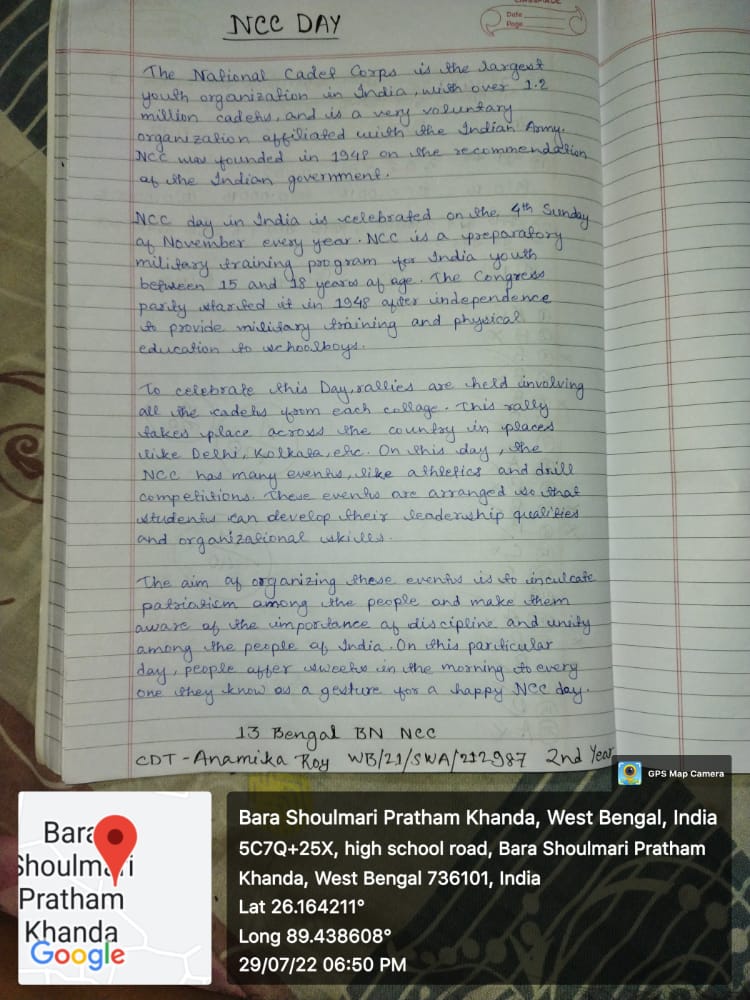 NCC DAY
CLASSMATE
Date
Page
The National Cadet Corps is the largest
youth organization in India, with over 1.2
million cadets, and is a very voluntary
organization affiliated with the Indian Army.
NCC was founded in 1948 on the recommendation
of the Indian government.
NCC day in India is celebrated on the 4th Sunday
of November every year. NCC is a preparatory
military training program for India youth
between 15 and 18 years of age. The Congress
party started it in 1948 after independence
to provide military training and physical
education to schoolboys.
To celebrate this Day, rallies are held involving
all the cadets from each collage. This rally
takes place across the country in places
like Delhi, Kolkata, etc. On this day, the
NCC has many events, like athletics and drill
competitions. These events are arranged so that
students can develop their leadership qualities
and organizational skills.
The aim of organizing these events is to inculcate
patriotism among the people and make them
aware of the importance of discipline and unity
among the people of India. On this particular
day, people offer sweets in the morning to every
one they know as a gesture for a happy NCC day.
13 Bengal BN NCC
CDT - Anamika Roy WB/21/SWA/212987 2nd Year
GPS Map Camera
Bara
Shoulmari
Pratham
Khanda
Google
Bara Shoulmari Pratham Khanda, West Bengal, India
5C7Q+25X, high school road, Bara Shoulmari Pratham
Khanda, West Bengal 736101, India
Lat 26.164211°
Long 89.438608°
29/07/22 06:50 PM